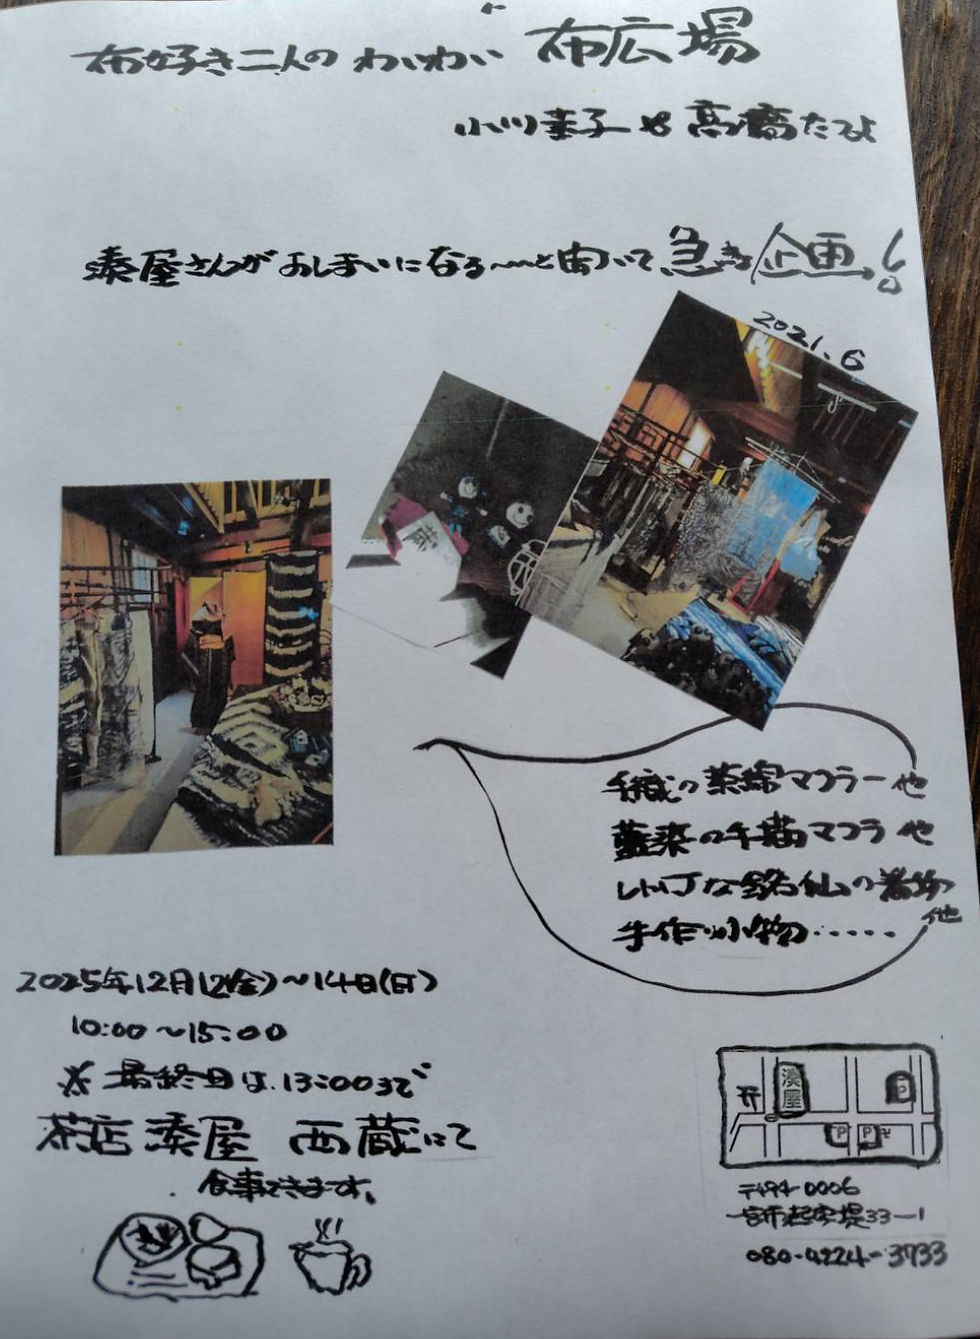 布好き二人の わいわい 布広場
小川圭子 や 高橋たつよ
湊屋さんがおしまいになる〜〜と聞いて、急きょ企画!
2021.6
手織の茶綿マフラー他
藍染の手描マフラ 他
レトロな銘仙の着物
他
手作り小物・・・・・
2025年12月12(金)〜14日(日)
10:00〜15:00
※最終日は、13:00まで
茶店 湊屋 西蔵にて
食事できます。
湊屋
P
P
P
〒494-0006
一宮市起字堤33-1
080-4224-3733